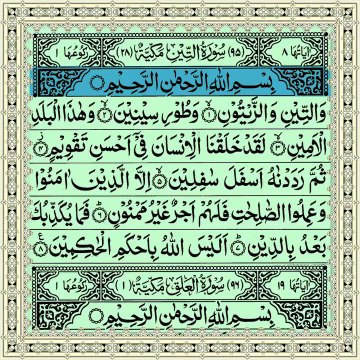 اٰیاتها ٨ (٩٥) سُوْرَةُ التِّيْنِ مَكِّيَّةٌ (٢٨) رکوعها ١
بِسْمِ اللهِ الرَّحْمٰنِ الرَّحِيْمِ
وَالتِّيْنِ وَالزَّيْتُوْنِ ۙ١ وَطُوْرِ سِيْنِيْنَ ۙ٢ وَهٰذَا الْبَلَدِ
الْاَمِيْنِ ۙ٣ لَقَدْ خَلَقْنَا الْاِنْسَانَ فِيْۤ اَحْسَنِ تَقْوِيْمٍ ٤
ثُمَّ رَدَدْنٰهُ اَسْفَلَ سٰفِلِيْنَ ۙ٥ اِلَّا الَّذِيْنَ اٰمَنُوْا
وَعَمِلُوا الصّٰلِحٰتِ فَلَهُمْ اَجْرٌ غَيْرُ مَمْنُوْنٍ ٦ فَمَا يُكَذِّبُكَ
بَعْدُ بِالدِّيْنِ ٧ اَلَيْسَ اللهُ بِاَحْكَمِ الْحٰكِمِيْنَ ٨
اٰیاتها ١٩ (٩٦) سُوْرَةُ الْعَلَقِ مَكِّيَّةٌ (١) رکوعها ١
بِسْمِ اللهِ الرَّحْمٰنِ الرَّحِيْمِ